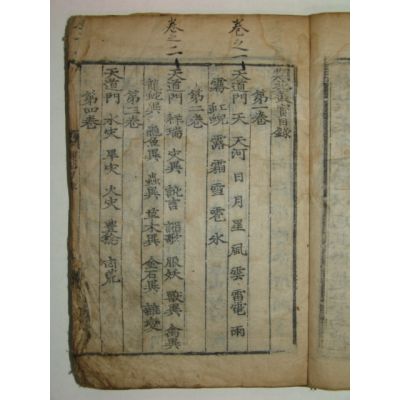 類苑叢寶目錄
卷之一
第一卷
天道門 天 天河 日 月 星 風 雲 雷 電 雨
霧 虹蜺 露 霜 雪 雹 氷
卷之二
第二卷
天道門 祥瑞 災異 訛言 謠歌 服妖 獸異 禽異
龍蛇異 龜魚異 蟲異 草木異 金石異 雜変
第三卷
天道門 水灾 旱灾 火灾 豊稔 凶荒
第四卷